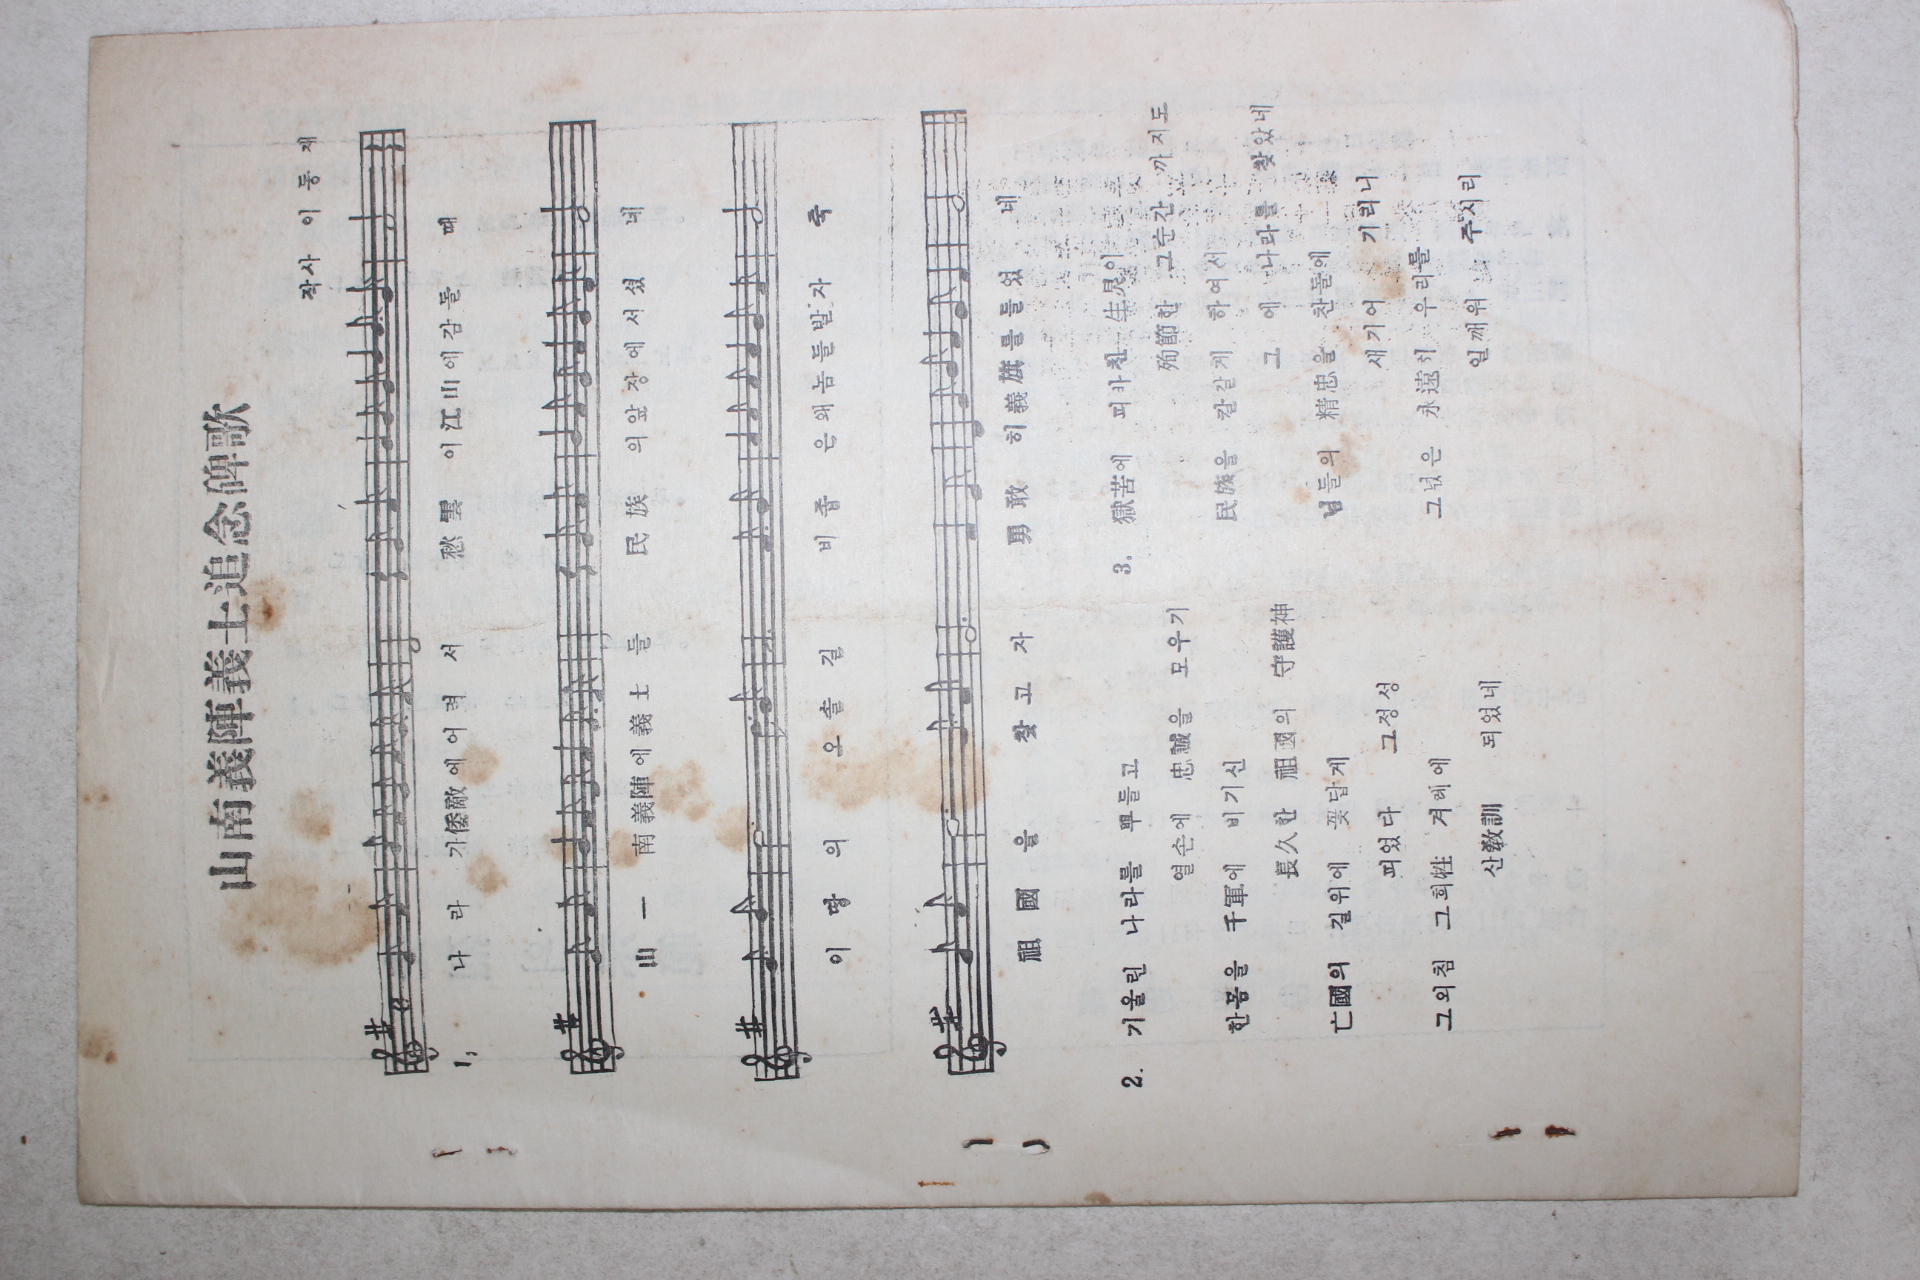 山南義陣義士追念碑歌
작사 이동재
1, 나라가倭敵에어려서 愁雲이江山에감돌때
山一南義陣에義士들 民族의앞장에서셨네
이땅의오솔길 비좁은왜놈들발자죽
祖國을찾고자 勇敢히義旗를들었네
2. 기울린 나라를 뿌들고
열손에 忠誠을 모우기
한몸을 千軍에 비기신
長久한 祖國의 守護神
亡國의 길위에 꽃답게
피었다 그정성
그외침 그희牲 겨레에
산敎訓 되었네
3. 獄苦에 피바친 生민이
殉節한 그순간 까지도
民族을 갈갈게 하여서
그 에 나라를 찾았네
님들의 精忠을 찬돌에
새기어 기리니
그넋은 永遠히 우리를
일깨워 주시리